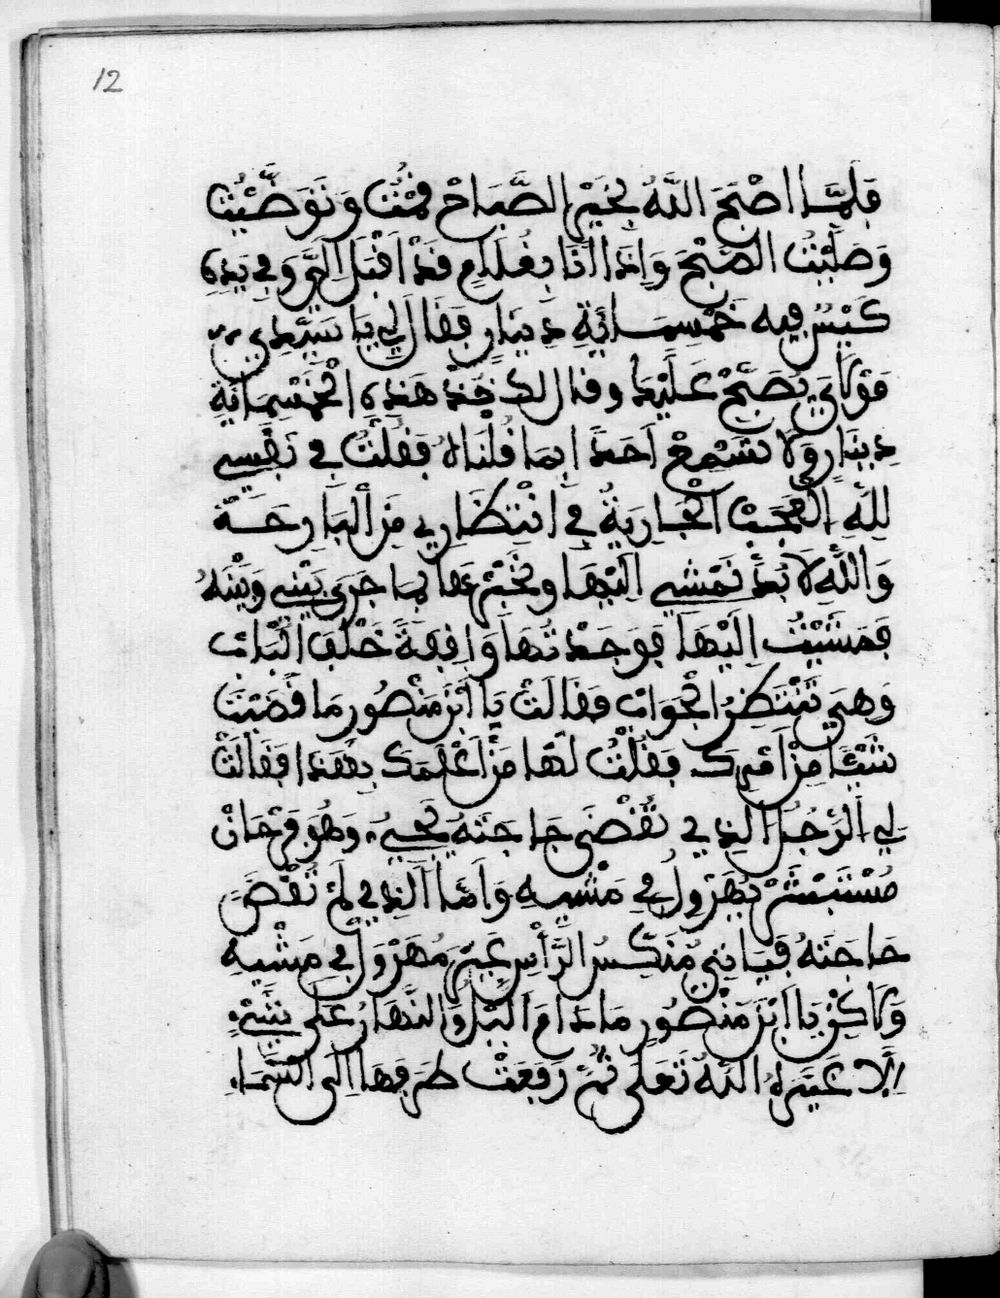 12
فَلَمَّا اصْبَحَ اللَّهُ بِخَيْرِ الصَّبَاحْ فُمْتُ وَتَوَضَّيْتُ
وَصَلَّيْتُ الصُّبْحَ وَإِذَا أنَا بِغُلَامٍ قَدْ اقْبَلَ إِلَيَّ وَفِي يَدِهِ
كَيْسٌ فِيهِ خَمْسِمَائَةِ دِينَارٍ فَقَالَ لِي يَا سَيِّدِي
مَوْلَايَ يُصَبِّحْ عَلَيْكَ وقال لك خُذْ هَذِهِ الْخَمْسِمَائَةِ
دِينَارٍ وَلَا تُسْمِعْ أَحَدًا بِمَا قُلْنَاهُ فَقُلْتُ فِي نَفْسِي
لِلَّهِ الْعَجَبْ الْجَارِيَةُ فِي انْتِظَارِي مِنَ الْبَارِحَةْ
وَاللَّهِ لَا بُدَّ نَمْشِي إِلَيْهَا وَنُخْبِرْهَا بِمَا جَرَى بَيْنِي وَبَيْنَهُ
فَمَشَيْتُ إِلَيْهَا فَوَجَدْتُهَا وَاقِفَةً خَلْفَ الْبَابْ
وَهِيَ تَنْتَظِرُ الْجَوَابْ فَقَالَتْ يَا ابْنَ مَنْصُورِ مَا قَضَيْتَ
شَيْئًا مِنْ أَمْرِكَ فَقُلْتُ لَهَا مَنْ أَعْلَمَكِ بِهَذَا فَقَالَتْ
لِي الرَّجُلُ الذِي تُقْضَى حَاجَتَهُ يَجِيء وَهُوَ فَرْحَانْ
مُسْتَبْشِرْ يُهَرْوِلُ فِي مَشْيِهِ وَأَمَّا الَّذِي لَمْ تُقْضَ
حَاجَتَهُ فَيَاتِي مُنَكِّسُ الرَّأْسِ غَيْرَ مُهَرْوِلْ فِي مَشْيِهِ
وَلَاكِنْ يَا ابْنَ مَنْصُورِ مَا دَامَ اللَّيْلُ وَالنَّهَارُ عَلَى شَيْءٍ
إِلَّا غَيَّرَهُ اللَّهُ تَعَلَى ثُمَّ رَفَعَتْ طَرْفَهَا إِلَى السَّمَاءِ